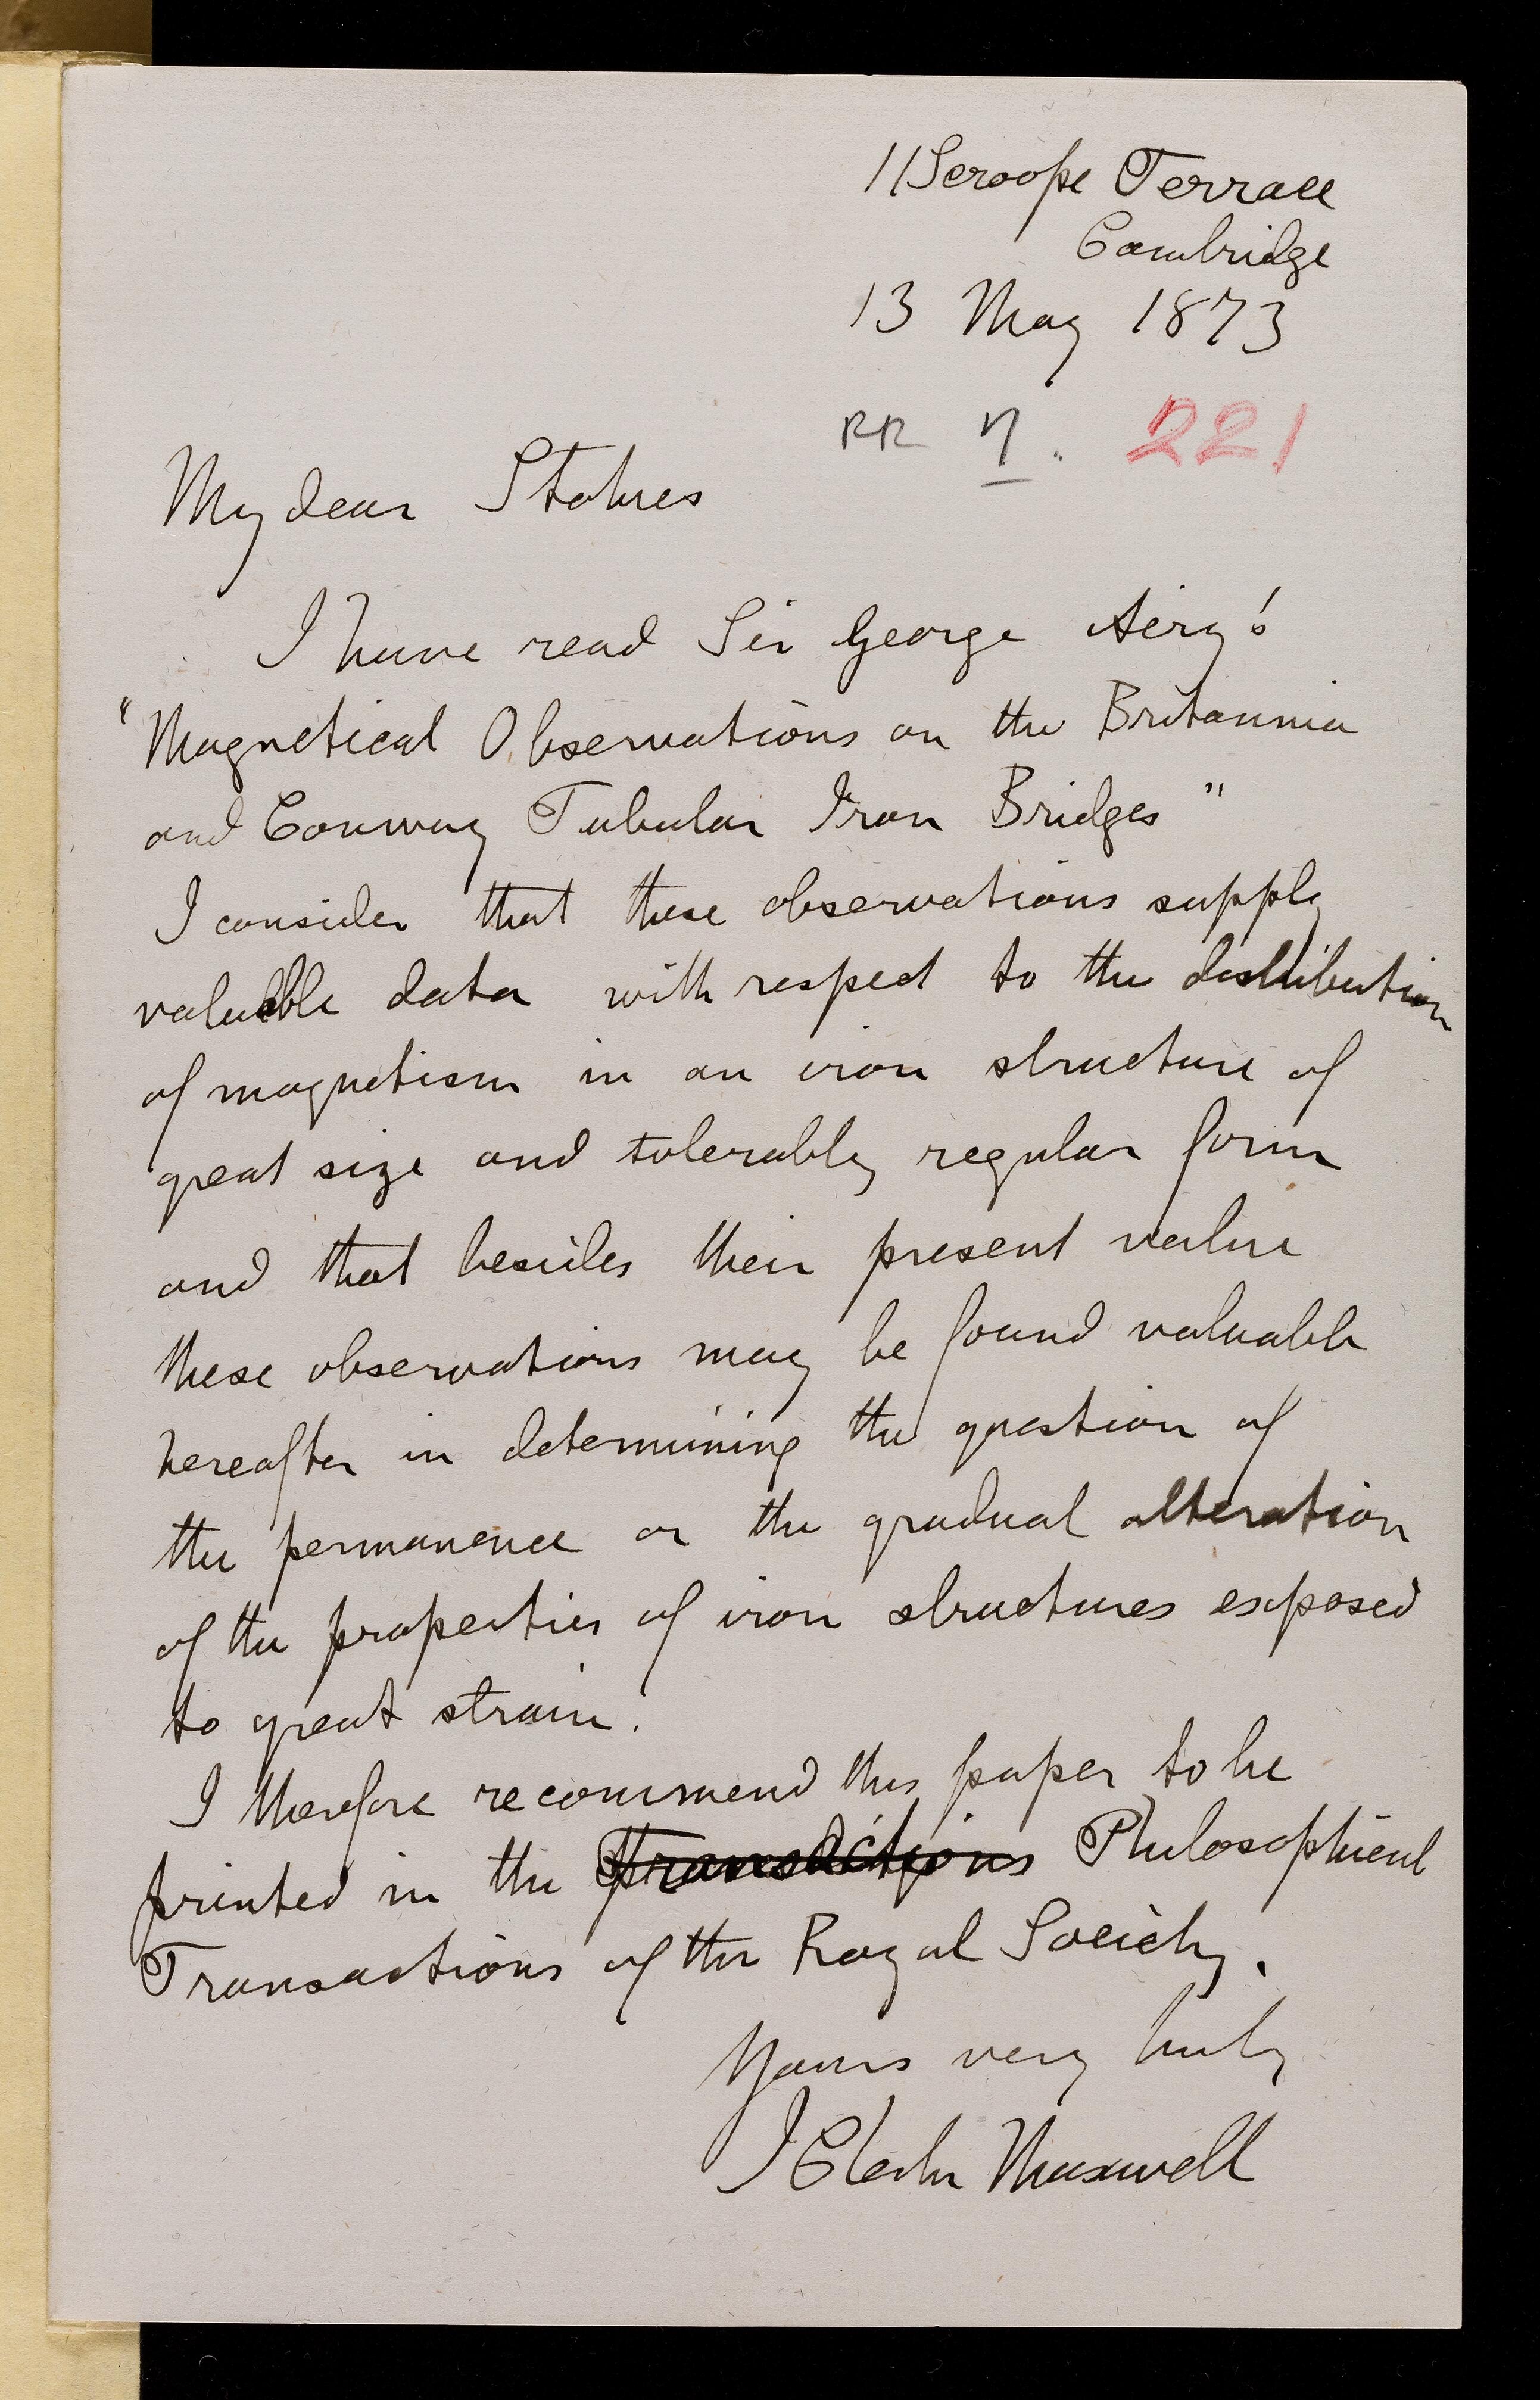 11 Scroope Terrace
Cambridge
13 May 1873
RR 7. 221
My dear Stokes
I have read Sir George Airy's
"Magnetical Observations on the Britannia
and Conway Tubular Iron Bridges"
I consider that these observations supply
valuable data with respect to the distribution
of magnetism in an iron structure of
great size and tolerably regular form
and that besides their present value
these observations may be found valuable
hereafter in determining the question of
the permanence or the gradual alteration
of the properties of iron structures exposed
to great strain.
I therefore recommend this paper to be
printed in the Transactions Philosophical
Transactions of the Royal Society.
Yours very truly
J Clerk Maxwell